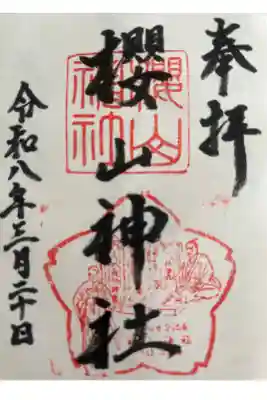 奉拝
櫻山神社
令和八年三月二十日
櫻山
神社